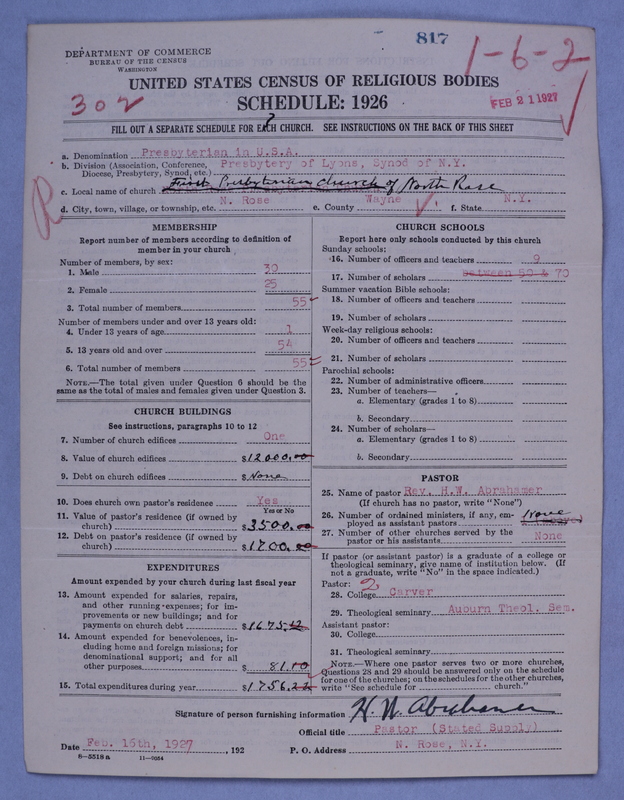 817
1-6-2
DEPARTMENT OF COMMERCE
BUREAU OF THE CENSUS
WASHINGTON
UNITED STATES CENSUS OF RELIGIOUS BODIES
302
SCHEDULE: 1926
FEB 21 1927
FILL OUT A SEPARATE SCHEDULE FOR EACH CHURCH. SEE INSTRUCTIONS ON THE BACK OF THIS SHEET
a. Denomination Presbyterian in U.S.A.
b. Division (Association, Conference, Diocese, Presbytery, Synod, etc.) Presbytery of Lyons, Synod of N.Y.
c. Local name of church First Presbyterian church of North Rose
d. City, town, village, or township, etc. N. Rose e. County Wayne f. State N.Y.
R
MEMBERSHIP
Report number of members according to definition of
member in your church
Number of members, by sex:
1. Male 30
2. Female 25
3. Total number of members 55
Number of members under and over 13 years old:
4. Under 13 years of age 1
5. 13 years old and over 54
6. Total number of members 55
NOTE.—The total given under Question 6 should be the
same as the total of males and females given under Question 3.
CHURCH BUILDINGS
See instructions, paragraphs 10 to 12
7. Number of church edifices One
8. Value of church edifices $12000.00
9. Debt on church edifices $ None
10. Does church own pastor's residence Yes
Yes or No
11. Value of pastor's residence (if owned by
church) $3500.00
12. Debt on pastor's residence (if owned by
church) $1700.00
EXPENDITURES
Amount expended by your church during last fiscal year
13. Amount expended for salaries, repairs,
and other running expenses; for im-
provements or new buildings; and for
payments on church debt $1675.12
14. Amount expended for benevolences, in-
cluding home and foreign missions; for
denominational support; and for all
other purposes $ 81.10
15. Total expenditures during year $1756.22
CHURCH SCHOOLS
Report here only schools conducted by this church
Sunday schools:
16. Number of officers and teachers 9
17. Number of scholars between 50 & 70
Summer vacation Bible schools:
18. Number of officers and teachers
19. Number of scholars
Week-day religious schools:
20. Number of officers and teachers
21. Number of scholars
Parochial schools:
22. Number of administrative officers
23. Number of teachers—
a. Elementary (grades 1 to 8)
b. Secondary
24. Number of scholars—
a. Elementary (grades 1 to 8)
b. Secondary
PASTOR
25. Name of pastor Rev. H.W. Abrahamer
(If church has no pastor, write "None")
26. Number of ordained ministers, if any, em-
ployed as assistant pastors None
27. Number of other churches served by the
pastor or his assistants None
If pastor (or assistant pastor) is a graduate of a college or
theological seminary, give name of institution below. (If
not a graduate, write "No" in the space indicated.)
Pastor: 2
28. College Carver
29. Theological seminary Auburn Theol. Sem.
Assistant pastor:
30. College
31. Theological seminary
NOTE.—Where one pastor serves two or more churches,
Questions 28 and 29 should be answered only on the schedule
for one of the churches; on the schedules for the other churches,
write "See schedule for church."
Signature of person furnishing information H. W. Abrahamer
Official title Pastor (Stated Supply)
Date Feb. 15th, 1927 , 192 P. O. Address N. Rose, N.Y.
8—5518 a 11—9054